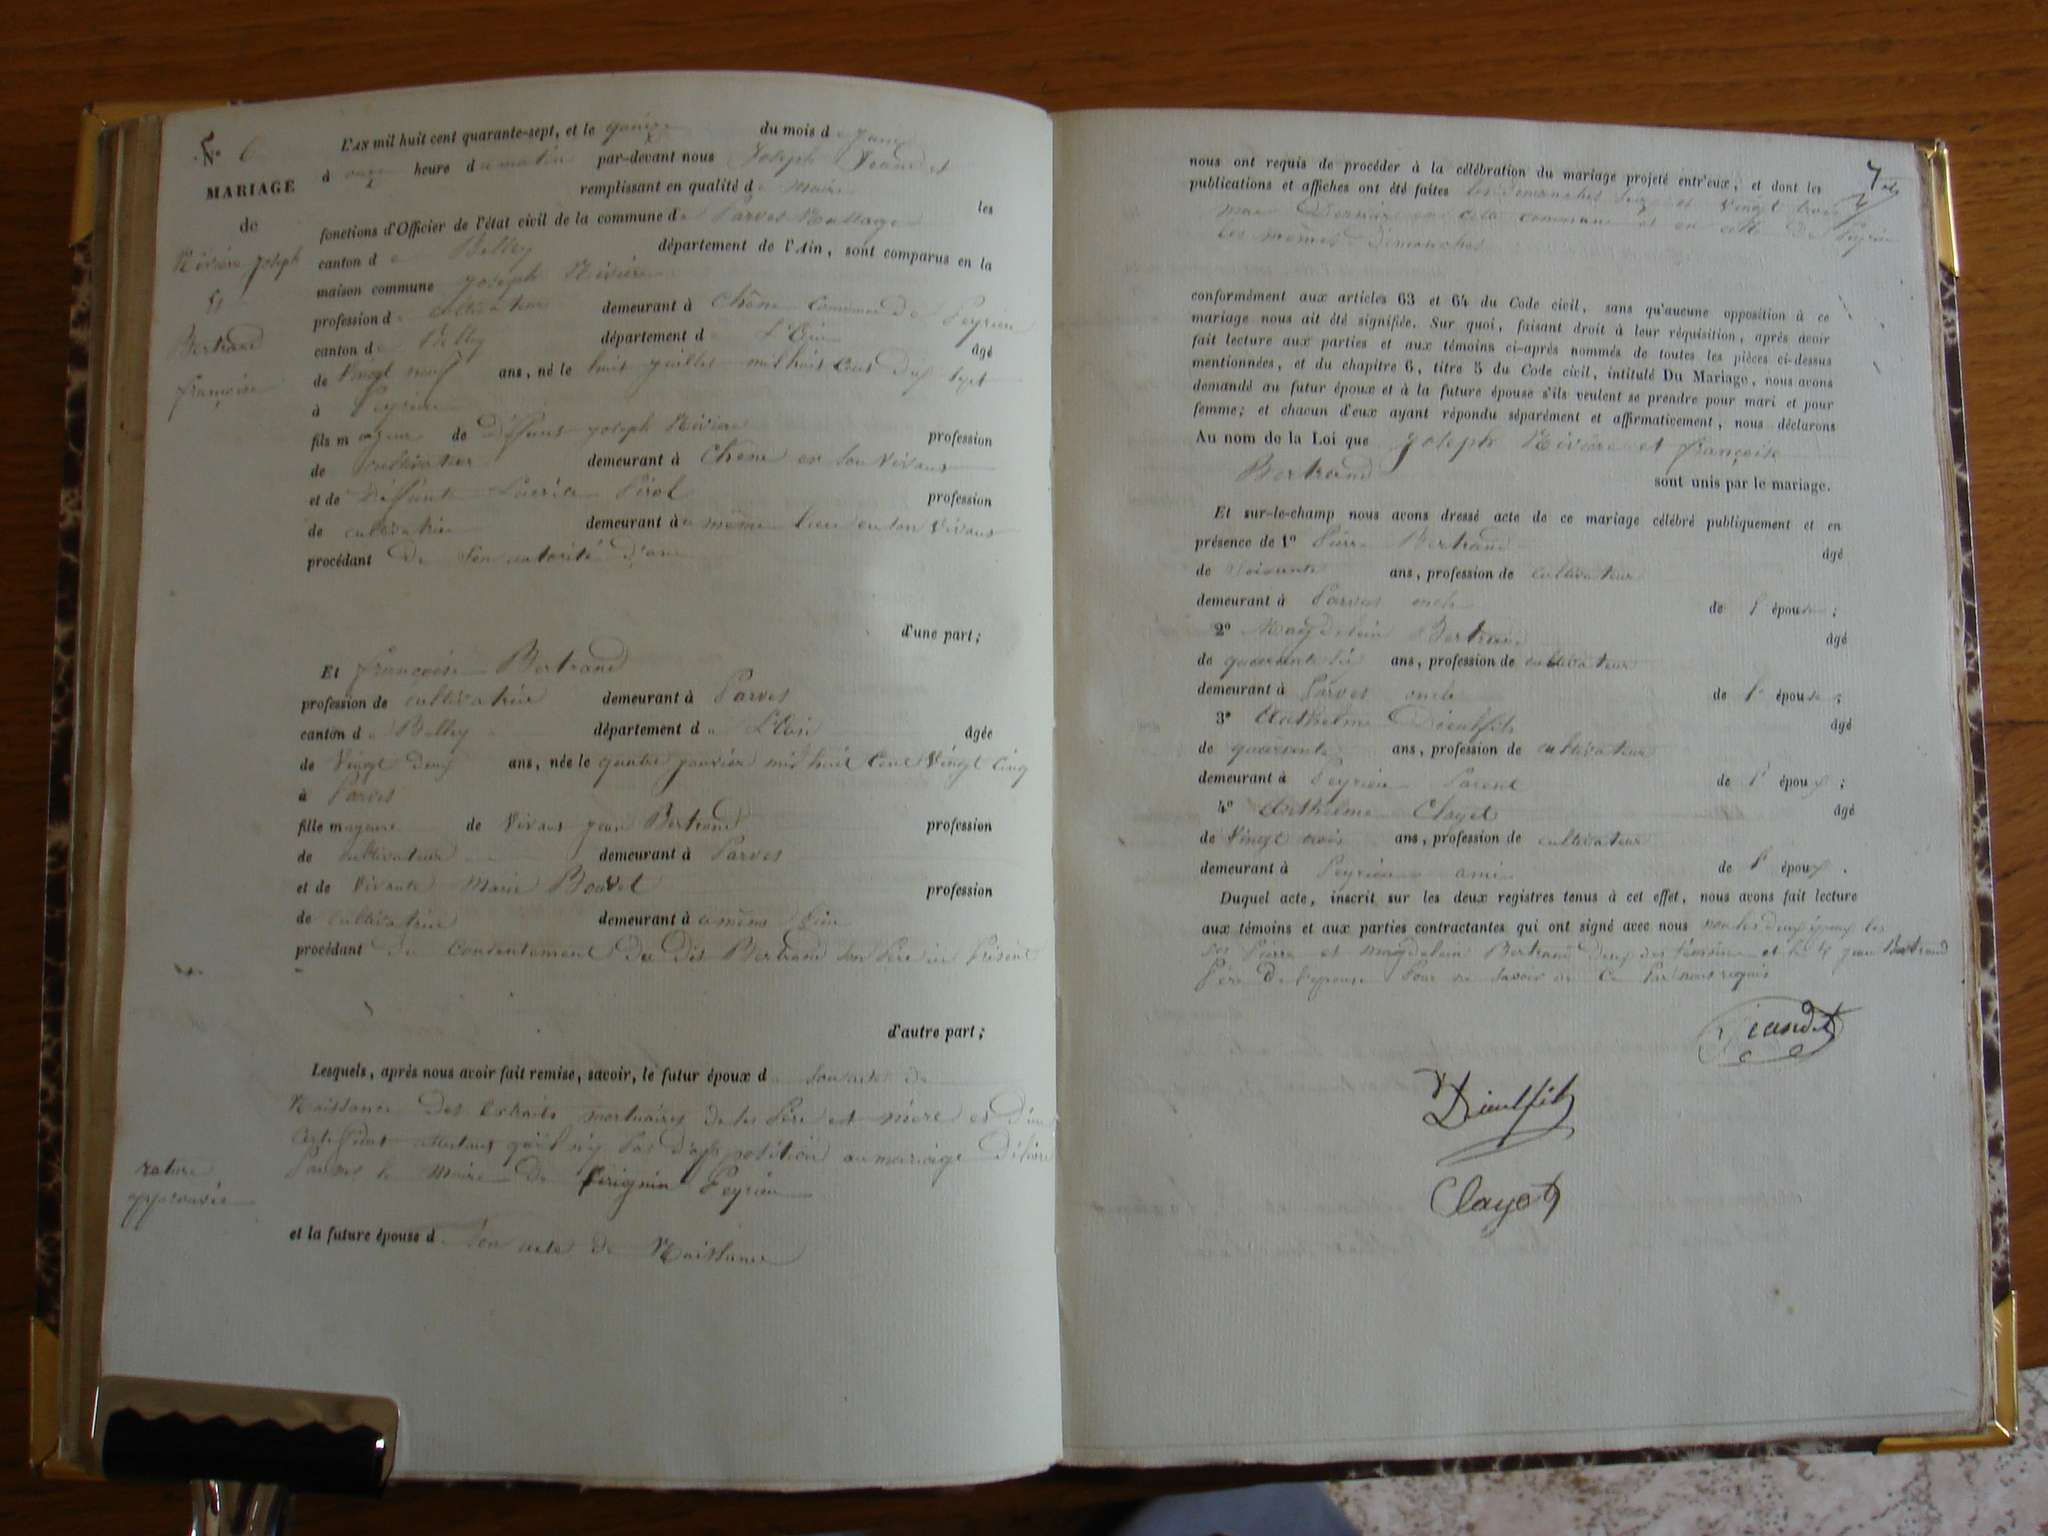 N° 6
MARIAGE
de
Rivière joseph
Et
Bertrand
françoise
L'AN mil huit cent quarante-sept, et le quinze du mois de juin
à onze heure du matin par-devant nous Joseph
remplissant en qualité de Maire les
fonctions d'Officier de l'état civil de la commune de Parves Nattage
canton de Belley département de l'Ain, sont comparus en la
maison commune joseph Rivière
profession de cultivateur demeurant à Chêne Commune de Peyrieu
canton de Belley département de L'Ain âgé
de Vingt neuf ans, né le huit juillet mil huit Cent dix sept
à Peyrieu
fils majeur de deffunt joseph Rivière profession
de cultivateur demeurant à Chêne en son vivant
et de deffunte Pirol profession
de cultivatrice demeurant au même lieu en son vivant
procédant de Son autorité
d'une part;
Et françoise Bertrand
profession de cultivatrice demeurant à Parves
canton de Belley département de L'Ain âgée
de Vingt deux ans, née le quatre janvier mil huit Cent Vingt Cinq
à Parves
fille majeure de Vivant jean Bertrand profession
de cultivateur demeurant à Parves
et de Vivante Marie Bouvet profession
de cultivatrice demeurant à même lieu
procédant du Consentement du dit Bertrand son Père ici Présent
d'autre part;
Lesquels, après nous avoir fait remise, savoir, le futur époux de Son acte de
Naissance des Extraits mortuaires de ses Père et mère et d'un
Certificat attestant qu'il n'y Pas d'opposition au mariage délivré
Par le Maire de Peyrieu
rature
approuvée
et la future épouse de Son acte de Naissance
7
nous ont requis de procéder à la célébration du mariage projeté entr'eux, et dont les
publications et affiches ont été faites les dimanches Seize et Vingt trois
mai Dernier en cette commune et en celle de Peyrieu
les mêmes dimanches
conformément aux articles 63 et 64 du Code civil, sans qu'aucune opposition à ce
mariage nous ait été signifiée. Sur quoi, faisant droit à leur réquisition, après avoir
fait lecture aux parties et aux témoins ci-après nommés de toutes les pièces ci-dessus
mentionnées, et du chapitre 6, titre 5 du Code civil, intitulé Du Mariage, nous avons
demandé au futur époux et à la future épouse s'ils veulent se prendre pour mari et pour
femme; et chacun d'eux ayant répondu séparément et affirmativement, nous déclarons
Au nom de la Loi que joseph Rivière et françoise
Bertrand sont unis par le mariage.
Et sur-le-champ nous avons dressé acte de ce mariage célébré publiquement et en
présence de 1° Pierre Bertrand âgé
de Soixante ans, profession de cultivateur
demeurant à Parves oncle de l'épouse;
2° Magdelein Bertrand âgé
de quarante six ans, profession de cultivateur
demeurant à Parves oncle de l'épouse;
3° Anthelme Dieulfils âgé
de quarante ans, profession de cultivateur
demeurant à Peyrieu Parent de l'époux;
4° Anthelme Clayet âgé
de Vingt trois ans, profession de cultivateur
demeurant à Peyrieu ami de l'époux.
Duquel acte, inscrit sur les deux registres tenus à cet effet, nous avons fait lecture
aux témoins et aux parties contractantes qui ont signé avec nous non les deux époux les
Pierre et Magdelein Bertrand deux des témoins et le jean Bertrand
Père de l'épouse Pour ne savoir de Ce Par nous requis
Dieulfils
Clayet